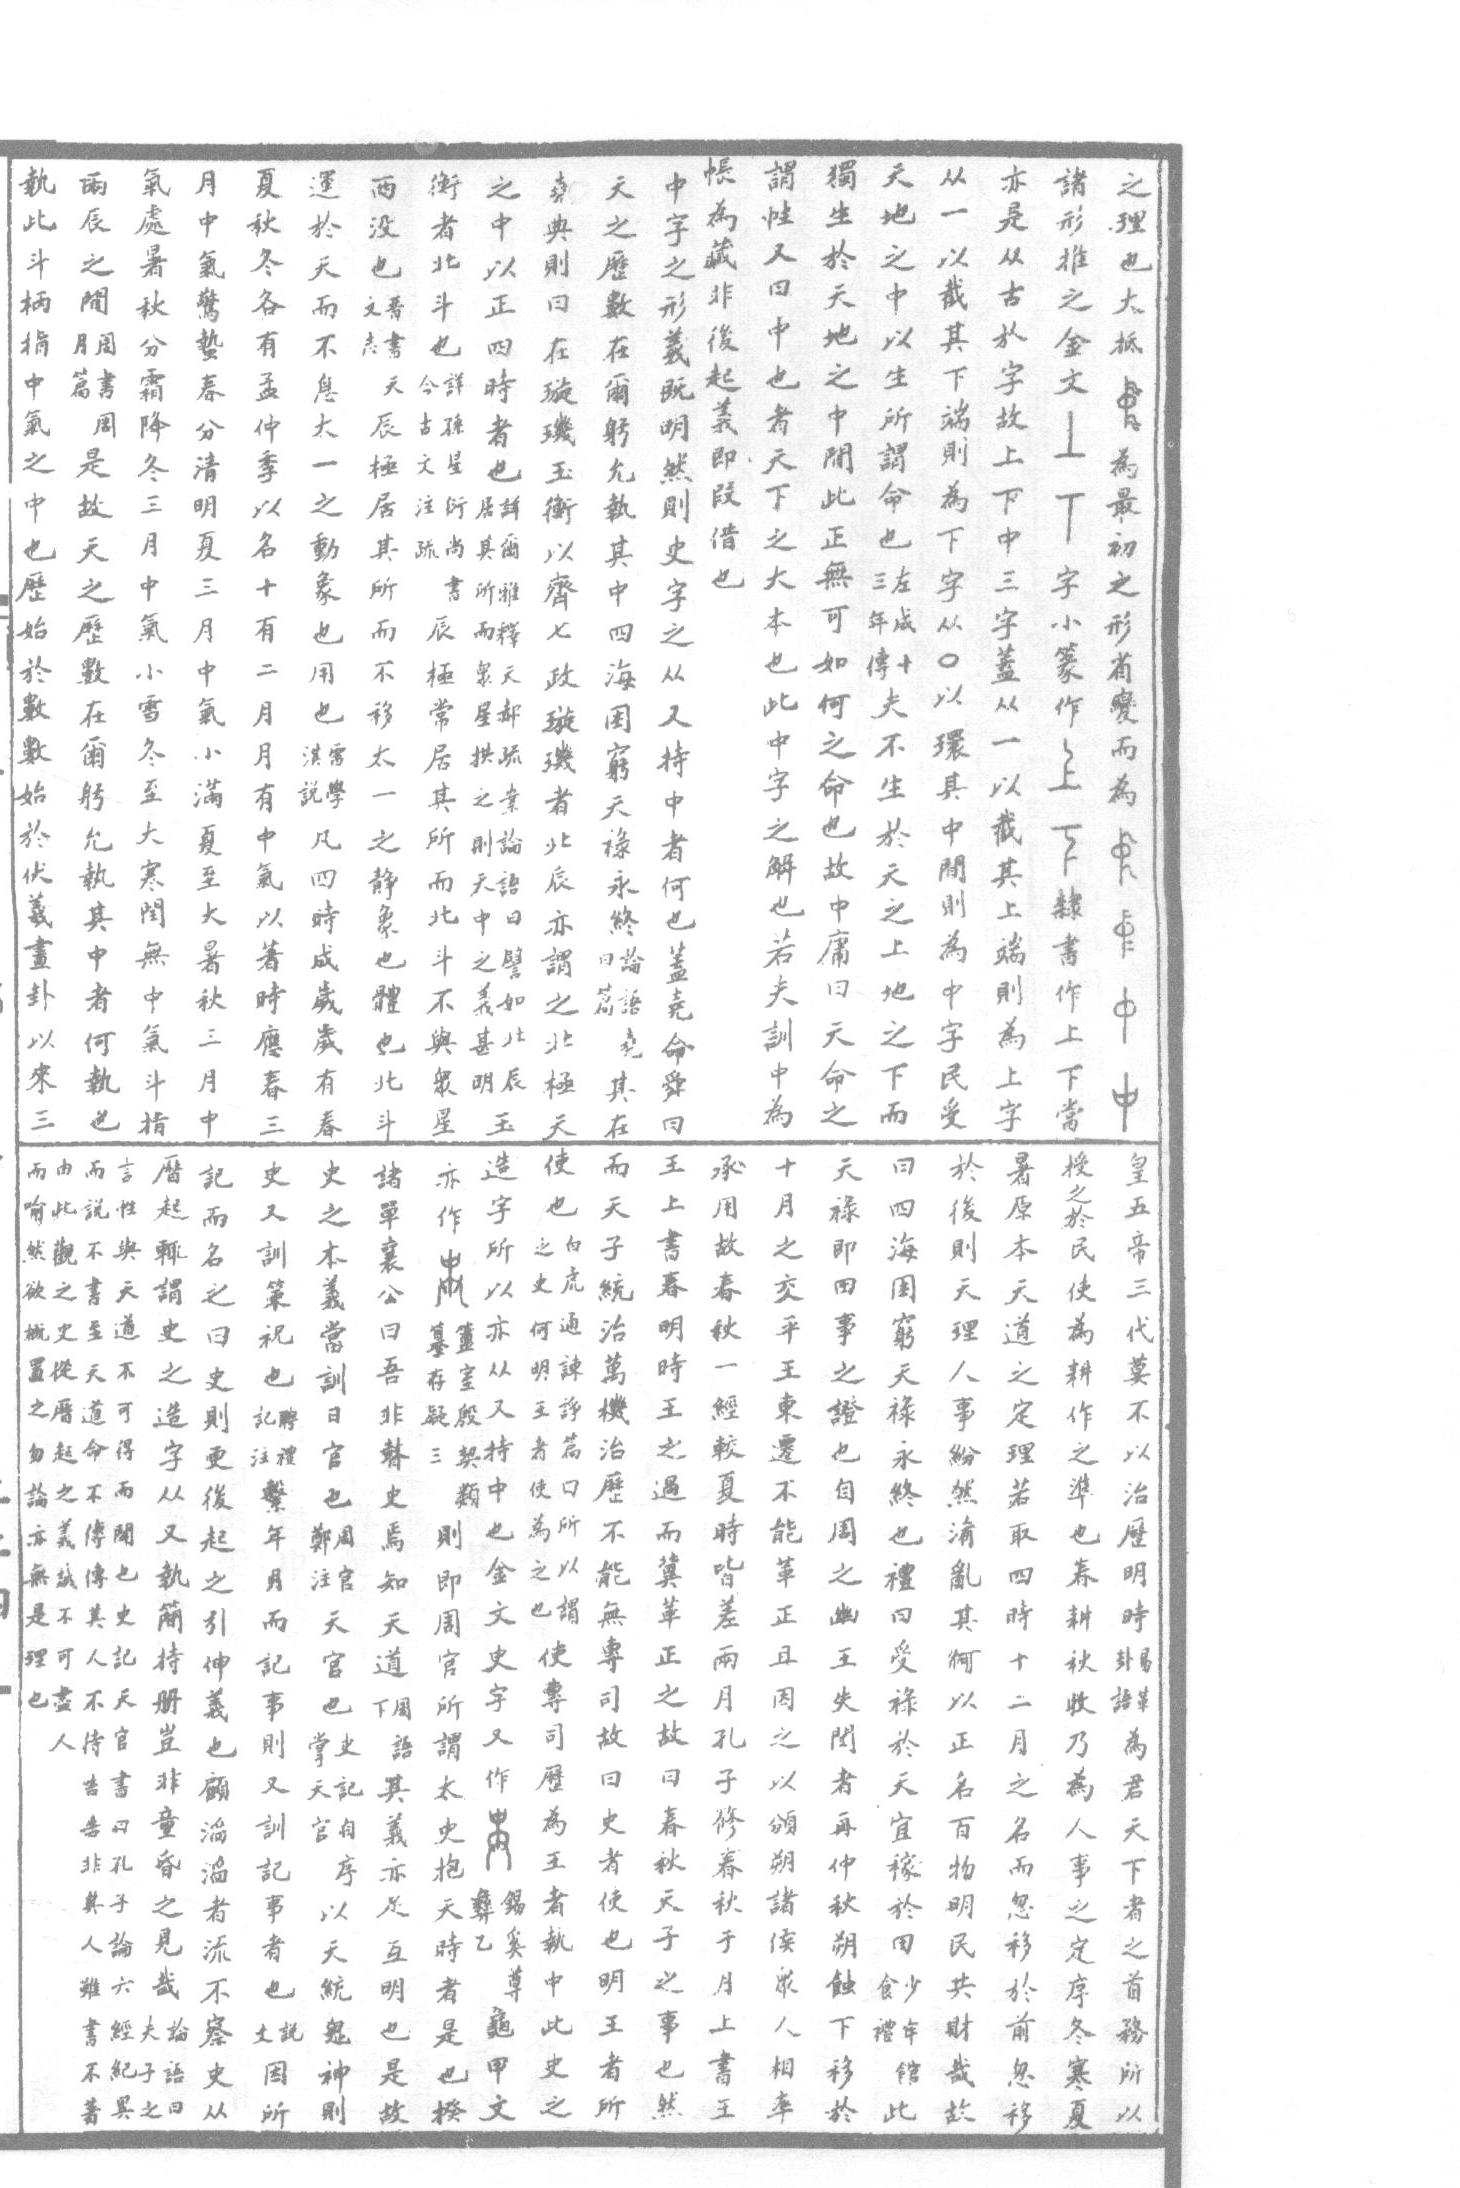 之理也大抵為最初之形省變而為
諸形推之金文丄丅字小篆作上下隸書作上下當
亦是从古於字故上下中三字蓋从一以截其上端則為上字
从一以截其下端則為下字从〇以環其中間則為中字民受
天地之中以生所謂命也左成十三年傳夫不生於天之上地之下而
獨生於天地之中間此正無可如何之命也故中庸曰天命之
謂性又曰中也者天下之大本也此中字之解也若夫訓中為
帳為藏非後起義即叚借也
中字之形義既明然則史字之从又持中者何也蓋堯命舜曰
天之歷數在爾躬允執其中四海困窮天祿永終論語堯曰篇其在
堯典則曰在璇璣玉衡以齊七政璇璣者北辰亦謂之北極天
之中以正四時者也詳爾雅釋天郝疏案論語曰譬如北辰居其所而眾星拱之則天中之義甚明玉
衡者北斗也詳孫星衍尚書今古文注疏辰極常居其所而北斗不與眾星
西沒也晉書天文志辰極居其所而不移太一之靜象也體也北斗
運於天而不息太一之動象也用也雷學淇說凡四時成歲歲有春
夏秋冬各有孟仲季以名十有二月月有中氣以著時應春三
月中氣驚蟄春分清明夏三月中氣小滿夏至大暑秋三月中
氣處暑秋分霜降冬三月中氣小雪冬至大寒閏無中氣斗指
兩辰之間周書周月篇是故天之歷數在爾躬允執其中者何執也
執此斗柄指中氣之中也歷始於數數始於伏羲畫卦以來三
皇五帝三代莫不以治歷明時易革卦語為君天下者之首務所以
授之於民使為耕作之準也春耕秋收乃為人事之定序冬寒夏
暑原本天道之定理若取四時十二月之名而忽移於前忽移
於後則天理人事紛然淆亂其何以正名百物明民共財哉故
曰四海困窮天祿永終也禮曰受祿於天宜稼於田少牢館食禮此
天祿即田事之證也自周之幽王失閏者再仲秋朔蝕下移於
十月之交平王東遷不能革正且因之以頒朔諸侯眾人相率
承用故春秋一經較夏時皆差兩月孔子修春秋于月上書王
王上書春明時王之過而冀革正之故曰春秋天子之事也然
而天子統治萬機治歷不能無專司故曰史者使也明王者所
使也白虎通諫諍篇曰所以謂之史何明王者使為之也使專司歷為王者執中此史之
造字所以亦从又持中也金文史字又作錫奚尊彝乙龜甲文
亦作簠室殷契類纂存疑三則即周官所謂太史抱天時者是也揆
諸單襄公曰吾非瞽史焉知天道周語下其義亦足互明也是故
史之本義當訓日官也周官鄭注天官也史記自序掌天官以天統鬼神則
史又訓策祝也聘禮記注繫年月而記事則又訓記事者也說文因所
記而名之曰史則更後起之引伸義也顧滔滔者流不察史从
曆起輒謂史之造字从又執簡持册豈非童昏之見哉論語曰夫子之
言性與天道不可得而聞也史記天官書曰孔子論六經紀異
而說不書至天道命不傳傳其人不待告告非其人雖書不著
由此觀之史從曆起之義誠不可盡人
而喻然欲概置之勿論亦無是理也